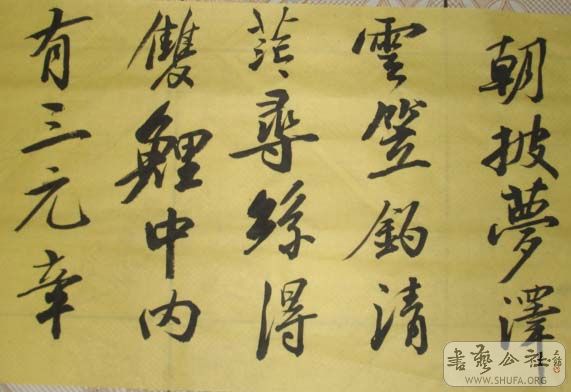 朝披夢澤
雲笠釣清
茫〻尋絲得
雙鯉中内
有三元章
書藝公社
WWW.SHUFA.ORG